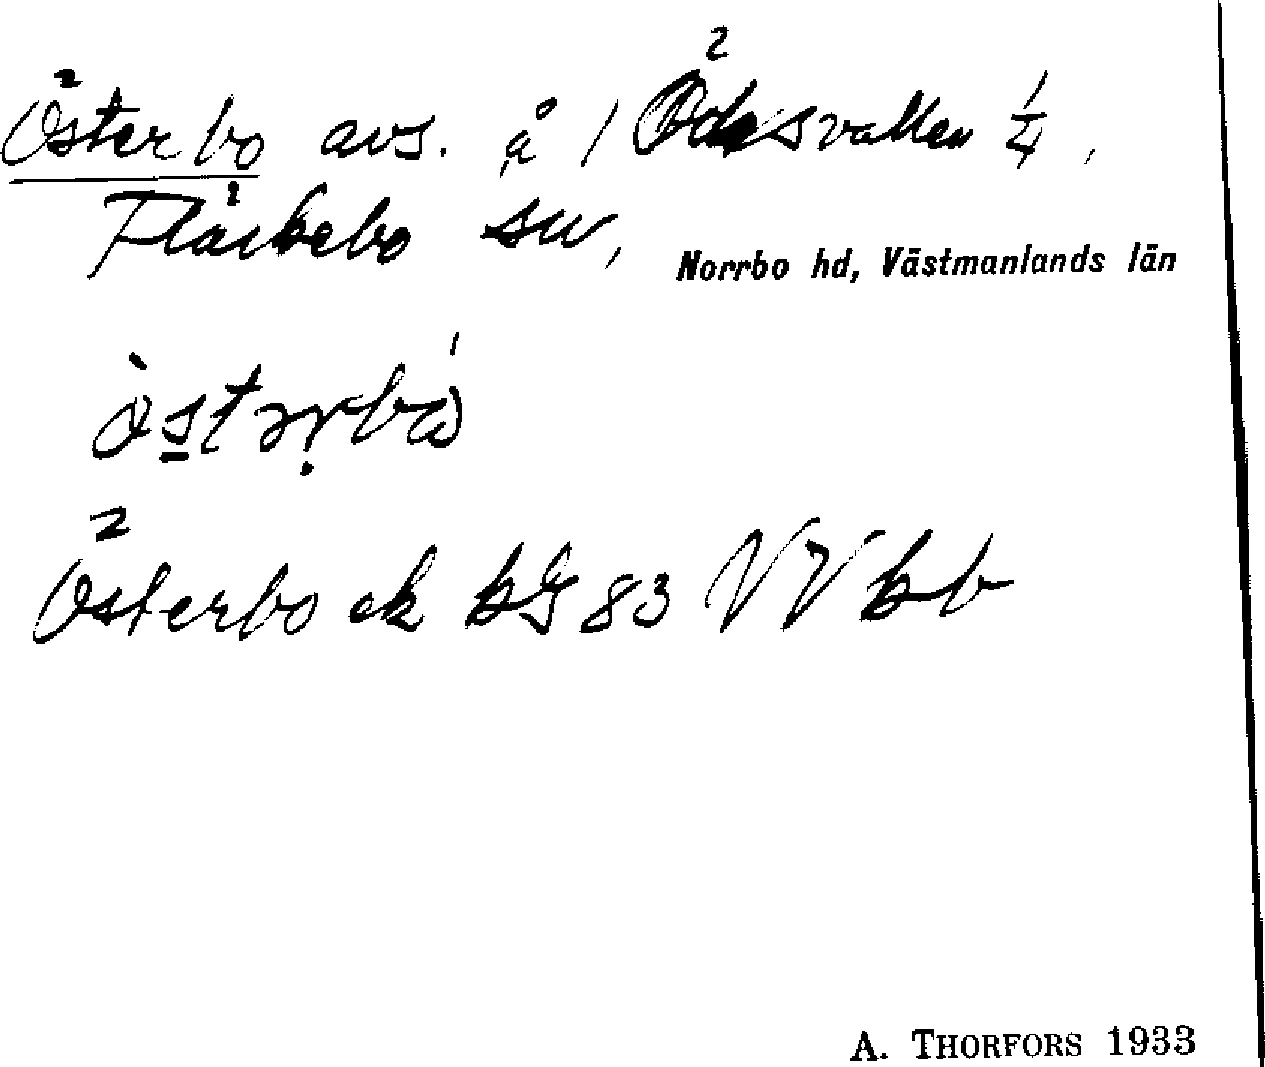 Österbo avs. å 1 Ödesvallen 1/4,
Fläckebo sn,
Norrbo hd, Västmanlands län
Österbo ek bl 83 VV
A. THORFORS 1933